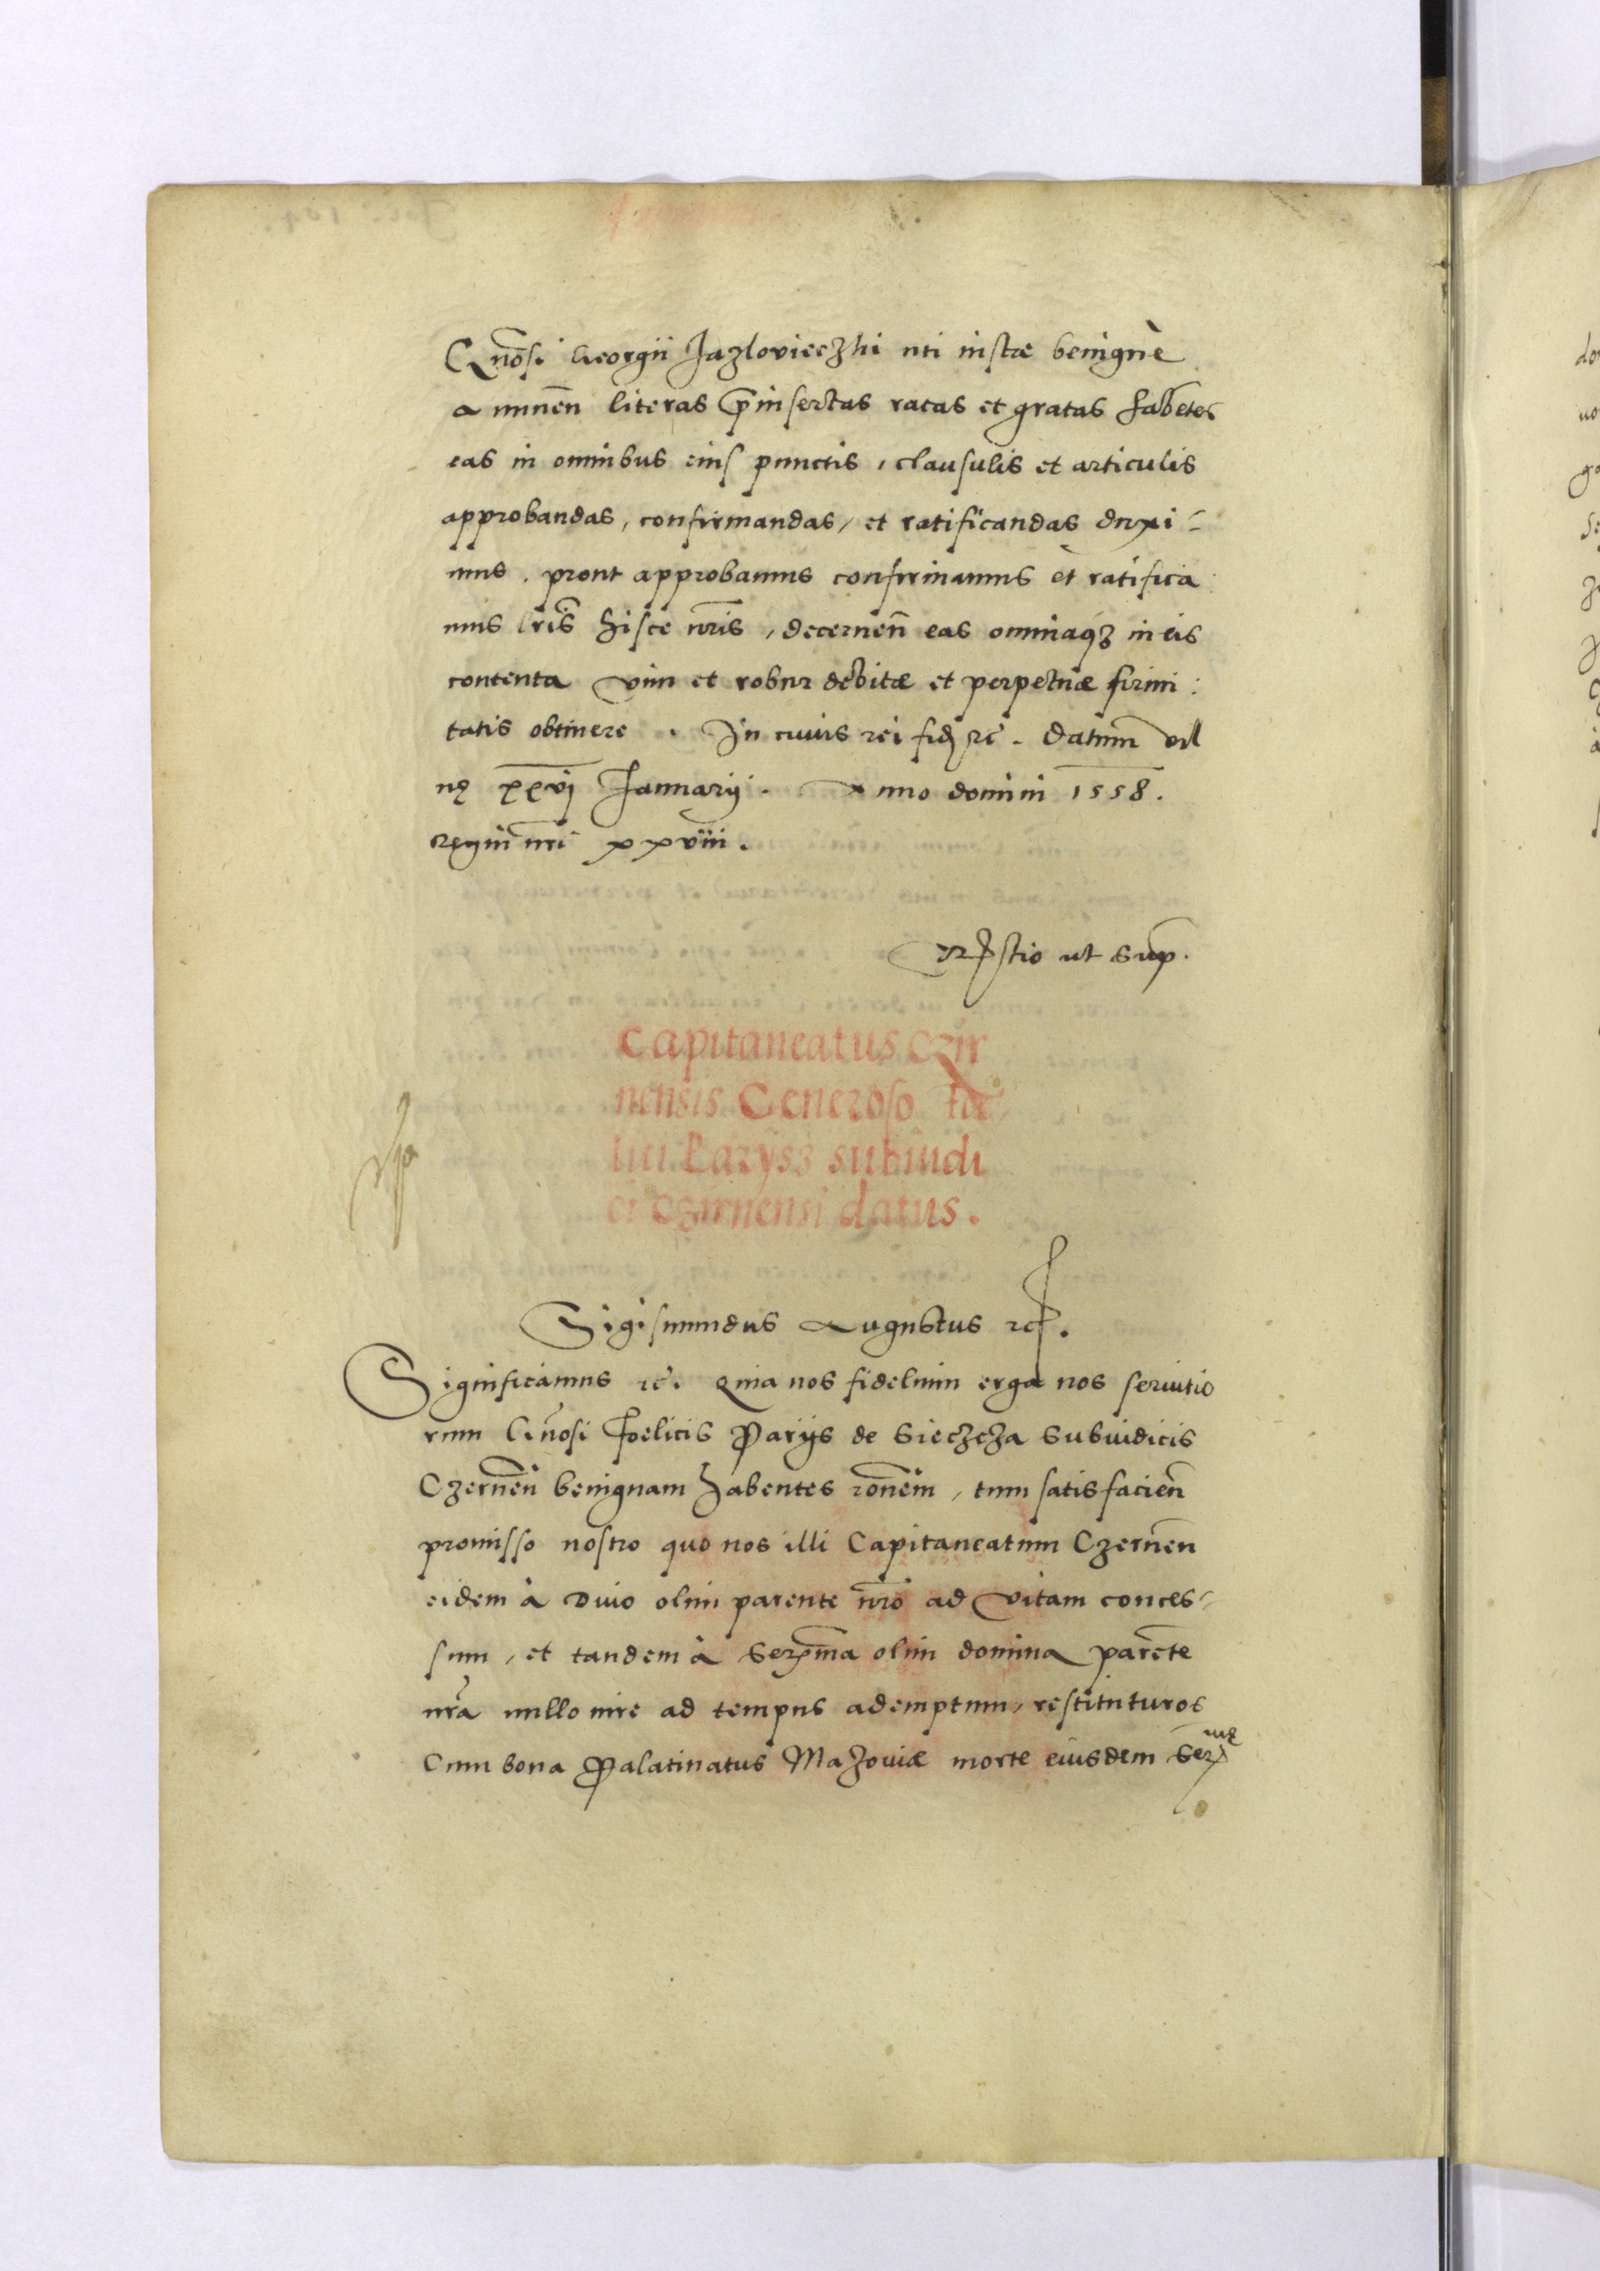 Gnōsi Georgii Jazlovieczki uti instæ benignè
annuen̄ literas p̄insertas ratas et gratas habētes
eas in omnibus eius punctis, clausulis et articulis
approbandas, confirmandas, et ratificandas duxi-
mus. prout approbamus confirmamus et ratifica
mus lr̄is hisce nr̄is, decernen̄ eas omniaqȝ in eis
contenta vim et robur debitæ et perpetuæ firmi:
tatis obtinere. In cuius rei fidē rc. Datum vil
nę xxvi Januarij. Anno domini 1558.
regni nr̄i xxviii.
ut sup.
Capitaneatus Czir
nensis Generoso Fæ
lici Parijs subiudi
ci Czirnensi datus.
Sigismundus Augustus rc.
Significamus rc. Quia nos fidelium erga nos seruitio
rum Gn̄osi Foelicis Parijs de Sieczcza Subiudicis
Czernen̄ benignam habentes ron̄em, tum satis facien̄
promisso nostro quo nos illi Capitaneatum Czernen̄
eidem à Diuo olim parente nr̄o ad vitam conces-
sum, et tandem à Ser̄ma olim domina parēte
nr̄a nullo iure ad tempus ademptum, restituturos
Cum bona Palatinatus Mazouiæ morte eiusdem Ser mę